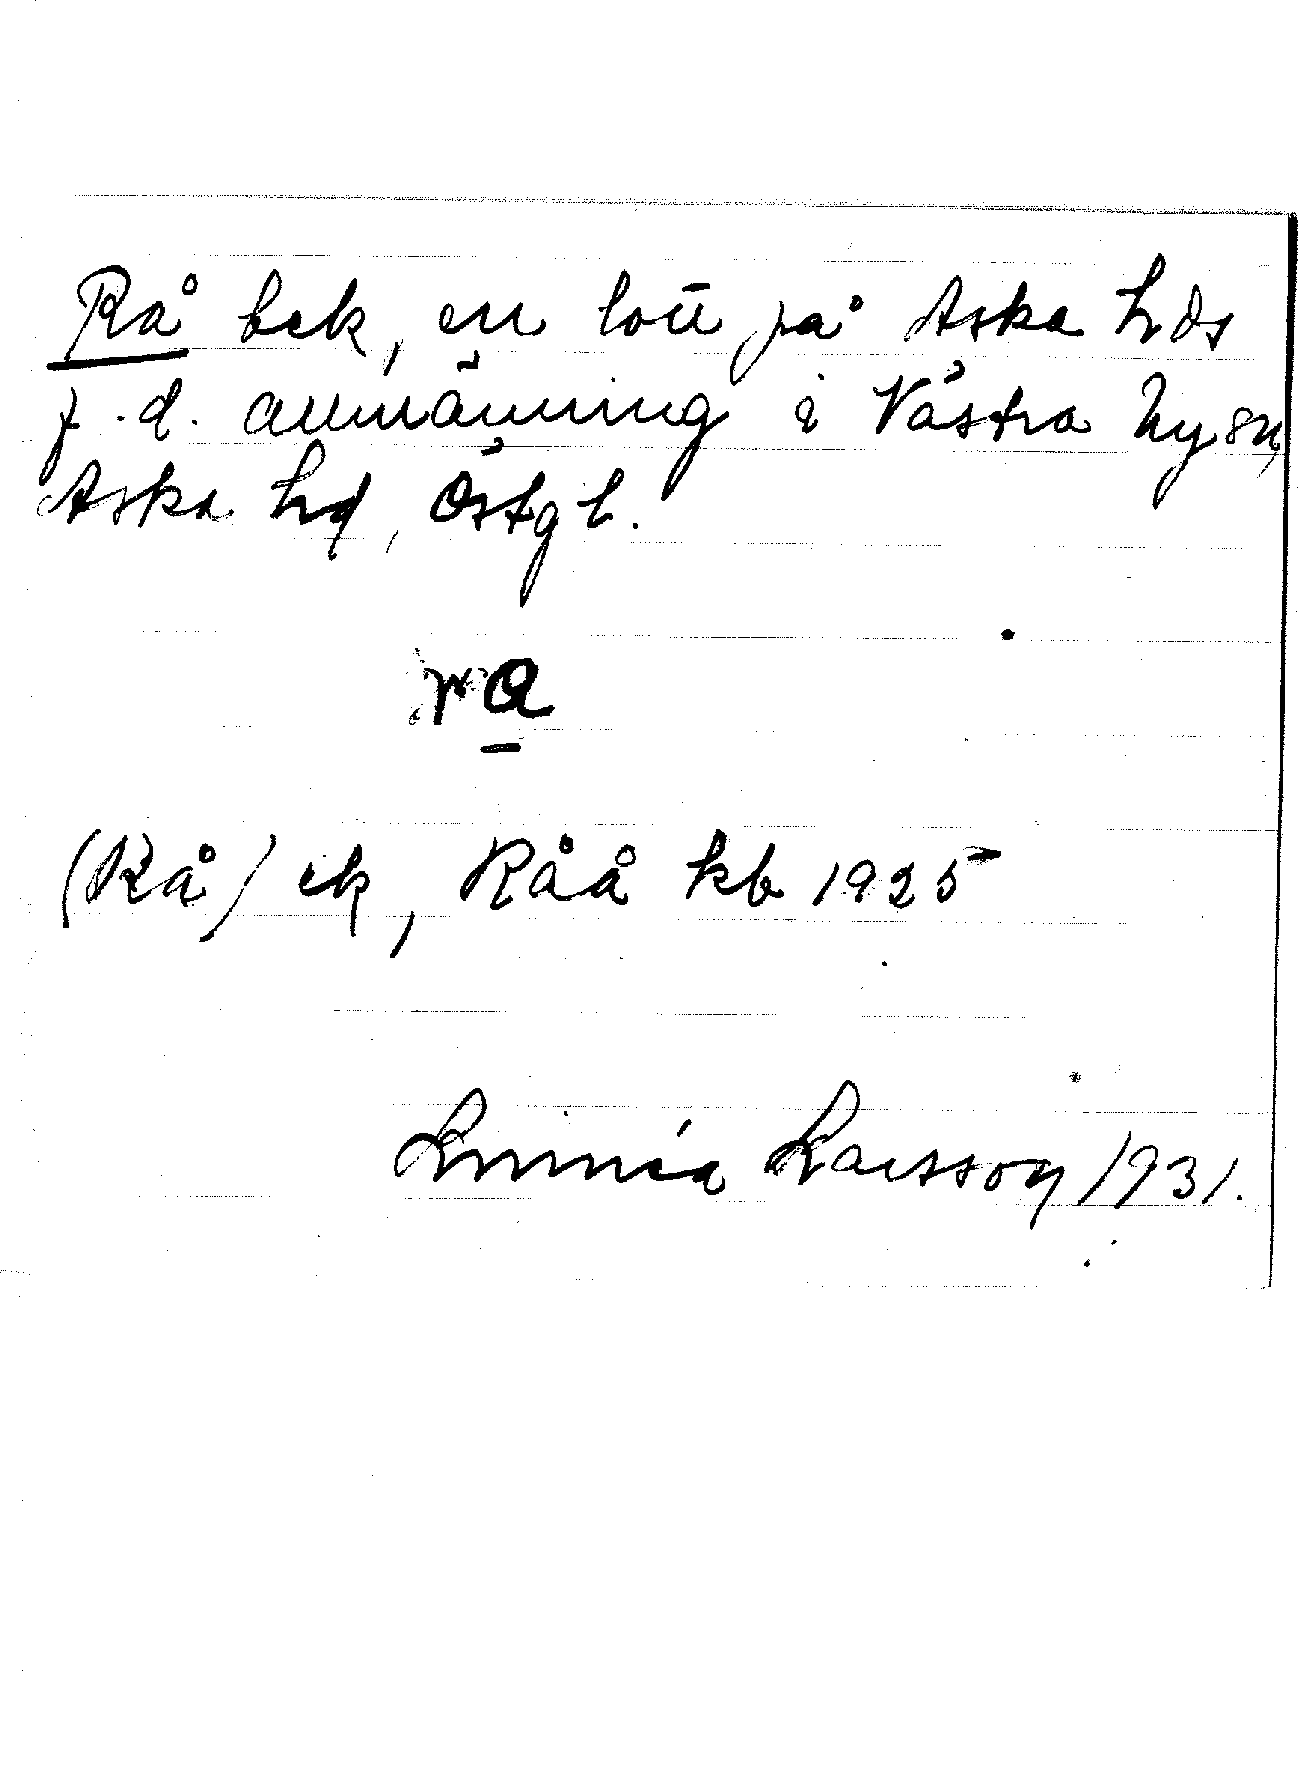 Rå bek, en lott på Aska hds
f.d. allmänning i Västra Ny sn,
Aska hd, Östgl.
(Rå) ek, Råå kb 1925
Linnéa Larsson 1931.